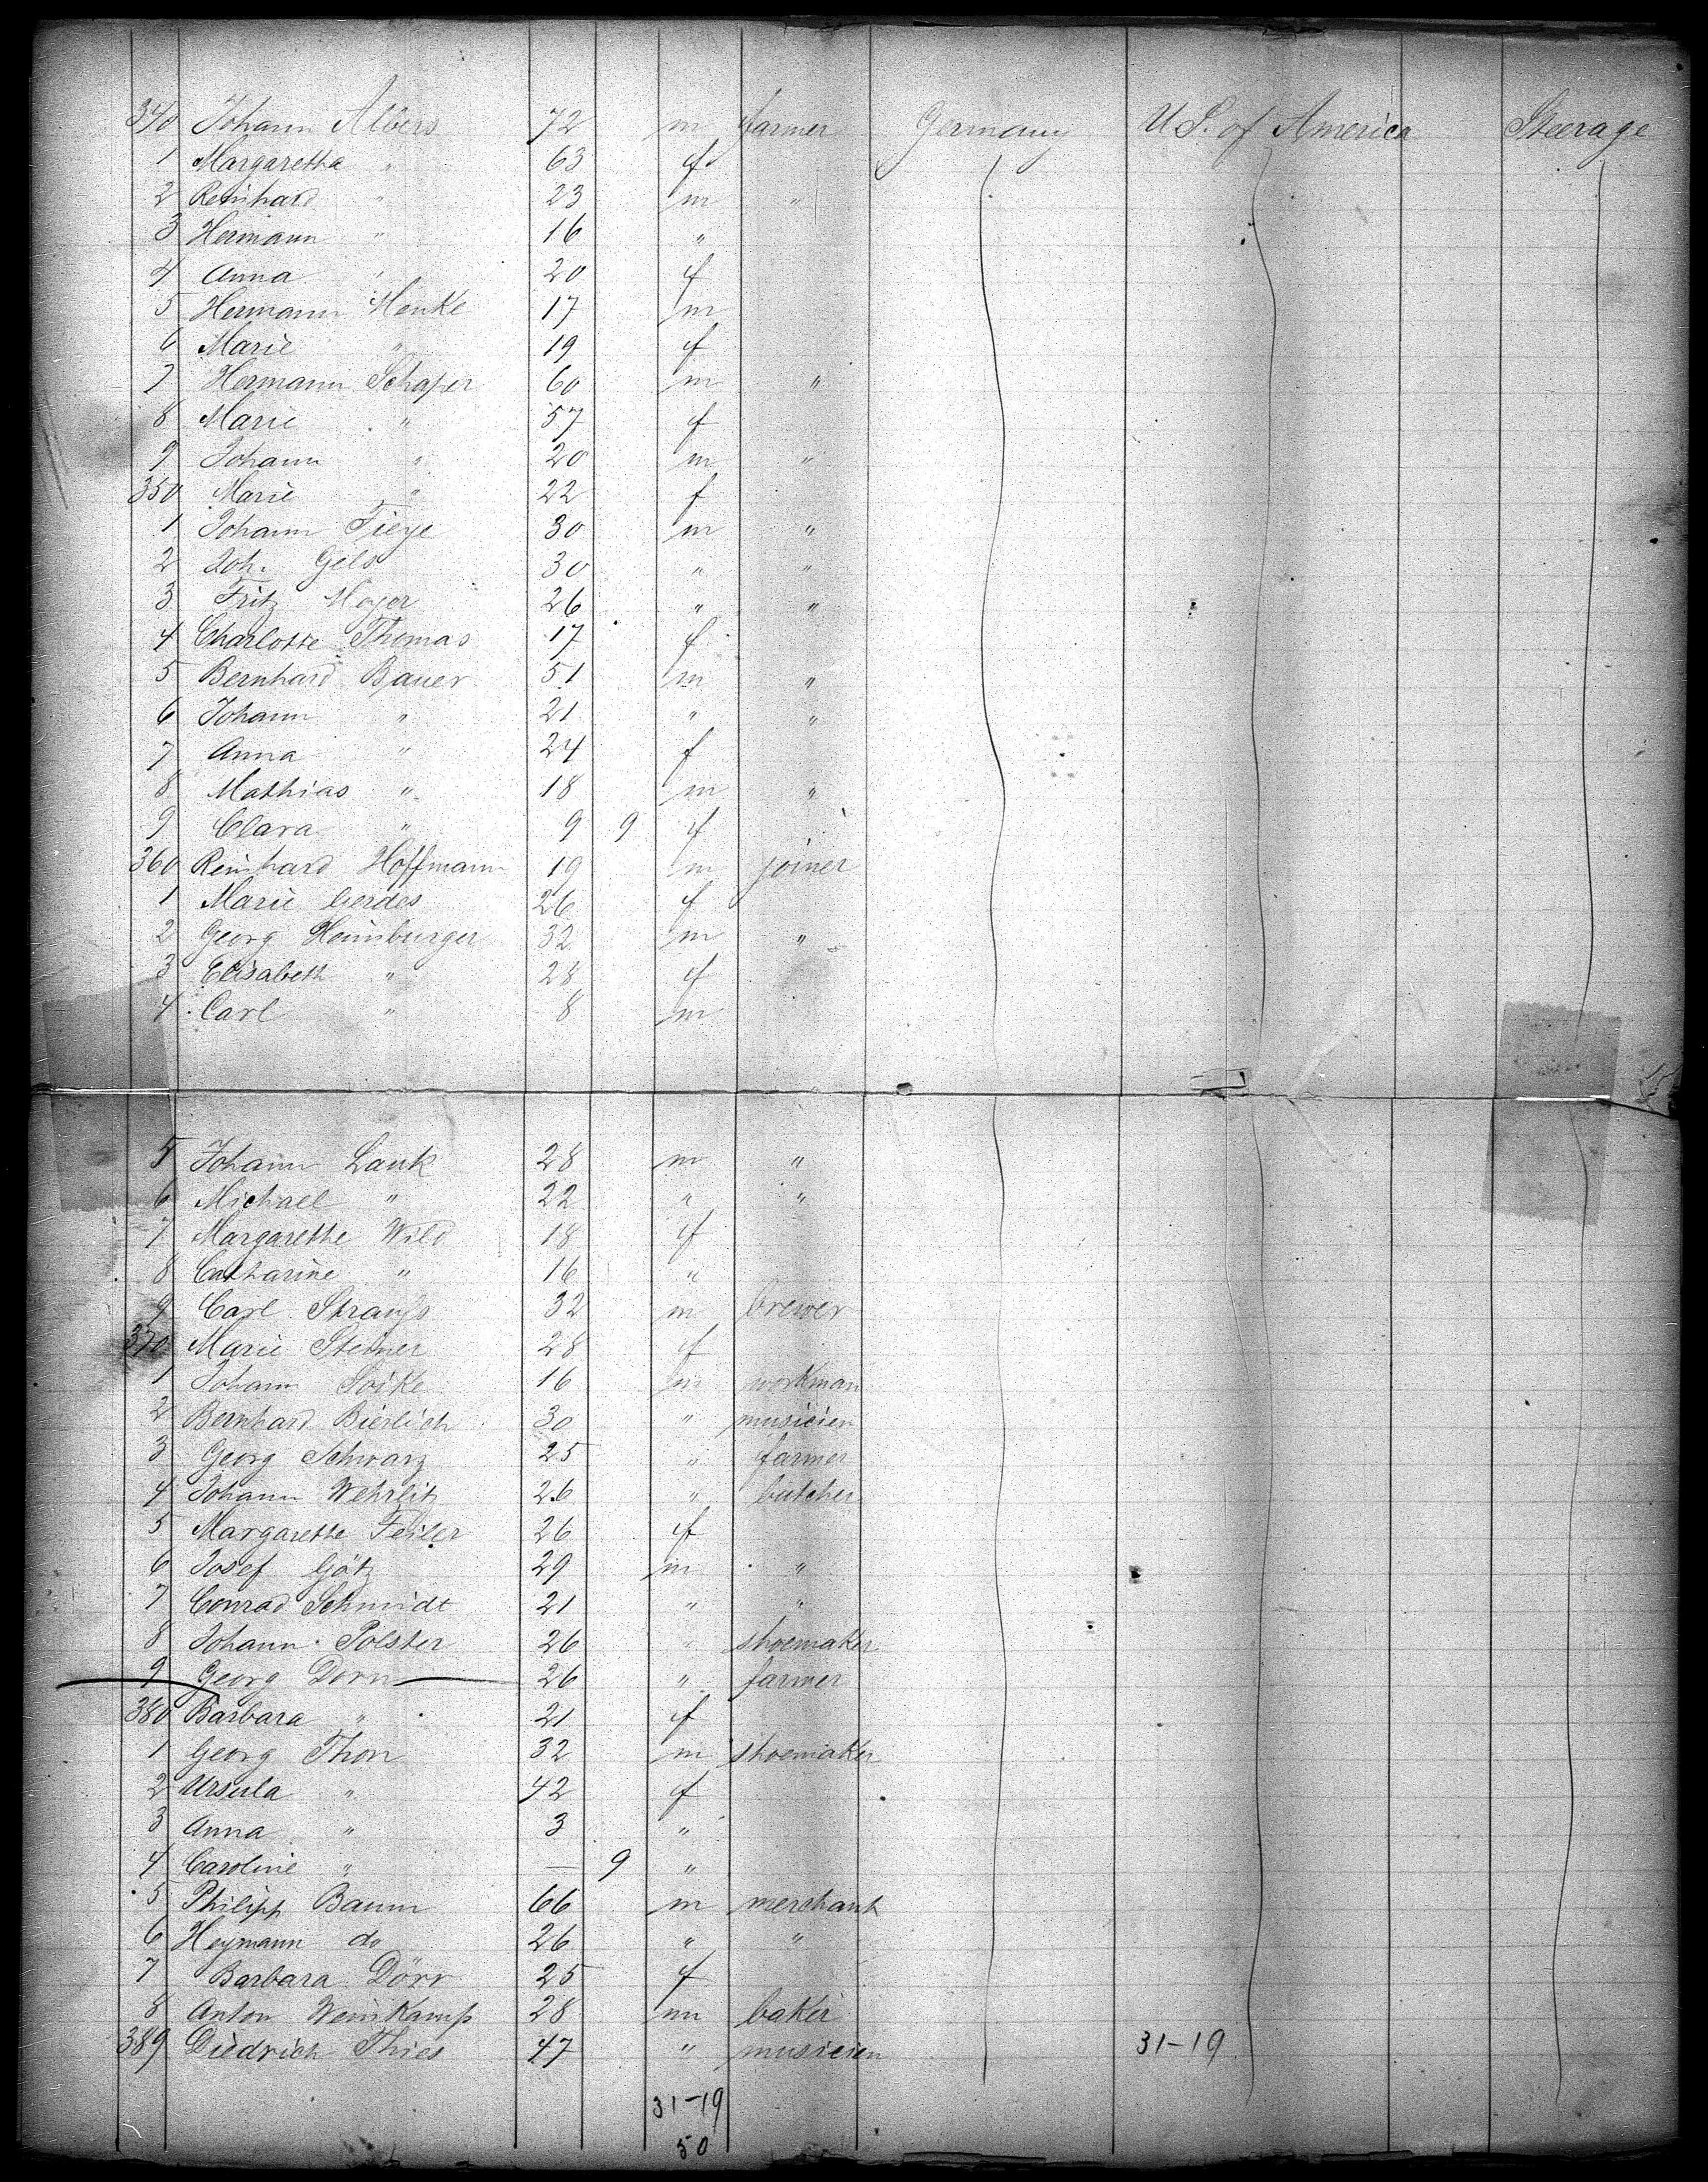 340 Johann Albers 72 m farmer Germany U S. of America Steerage
1 Margaretha " 63 f
2 Reinhard " 23 m "
3 Hermann " 16 "
4 Anna " 20 f
5 Hermann Henke 17 m
6 Marie " 19 f
7 Hermann Schaper 60 m "
8 Marie " 57 f
9 Johann " 20 m "
350 Marie " 22 f
1 Johann Tieye 30 m "
2 Joh. Gels 30 " "
3 Fritz Meyer 26 " "
4 Charlotte Thomas 17 f
5 Bernhard Bauer 51 m "
6 Johann " 21 " "
7 Anna " 24 f
8 Mathias " 18 m "
9 Clara " 9 9 f
360 Reinhard Hoffmann 19 m joiner
1 Marie Gerdes 26 f
2 Georg Heimburger 32 m "
3 Elisabeth " 28 f
4 Carl " 8 m
5 Johann Lauk 28 m "
6 Michael " 22 " "
7 Margarethe Wild 18 f
8 Catharine " 16 "
9 Carl Strauß 32 m brewer
370 Marie Steiner 28 f
1 Johann Soike 16 m workman
2 Bernhard Bierlich 30 " musicien
3 Georg Schwarz 25 " farmer
4 Johann Wehrlitz 26 " butcher
5 Margarethe Feiler 26 f
6 Josef Götz 29 m "
7 Conrad Schmidt 21 " "
8 Johann Polster 26 " shoemaker
9 Georg Dorn 26 " farmer
380 Barbara " 21 f
1 Georg Thon 32 m shoemaker
2 Ursula " 42 f
3 Anna " 3 "
4 Caroline " — 9 "
5 Philipp Baum 66 m merchant
6 Heymann do 26 " "
7 Barbara Dörr 25 f
8 Anton Weinkamp 28 m baker
389 Diedrich Thies 47 " musicien 31-19
31-19
50